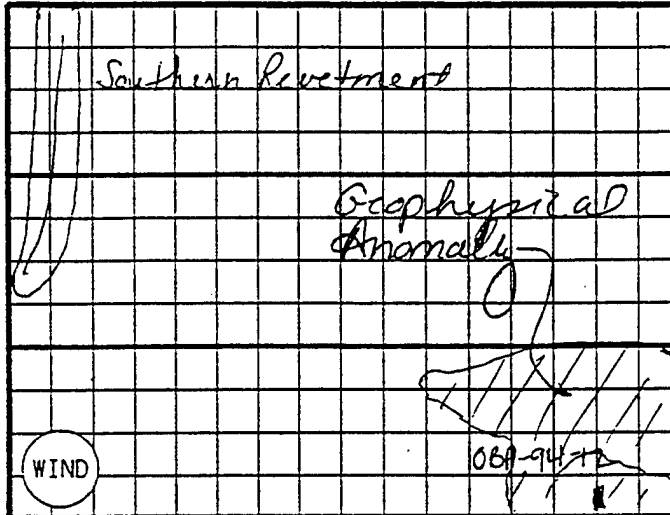 Southern Revetment
Geophysical
Anomaly
WIND